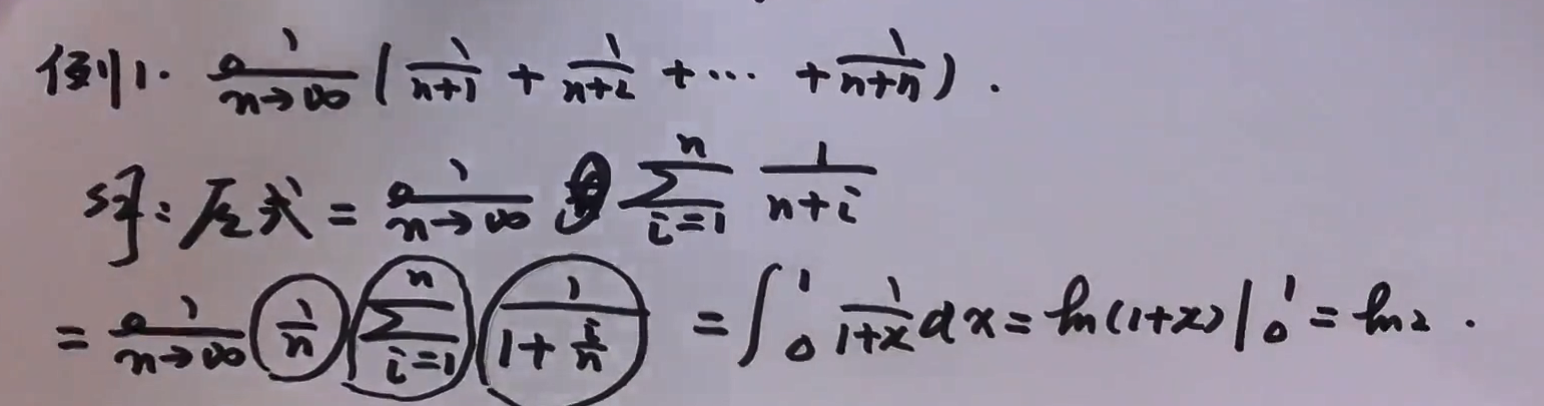 例1. lim n→∞ (1/(n+1) + 1/(n+2) + ⋯ + 1/(n+n)).
解:原式 = lim n→∞ ∑_{i=1}^{n} 1/(n+i)
= lim n→∞ 1/n ∑_{i=1}^{n} 1/(1+i/n) = ∫₀¹ 1/(1+x) dx = ln(1+x)|₀¹ = ln2.